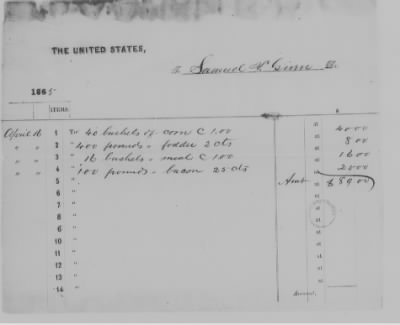 THE UNITED STATES,
To Samuel Dr.
1865
ITEMS. $
April 16 1 To 40 bushels of corn @ 1.00 40 00
" " 2 " 400 pounds " fodder 2 cts 8 00
" " 3 " 16 bushels " meal @ 1.00 16 00
" " 4 " 100 pounds " bacon 25 cts
5 " Amt $89.00
6 "
7 "
8 "
9 "
10 "
11 "
12 "
13 "
14 "